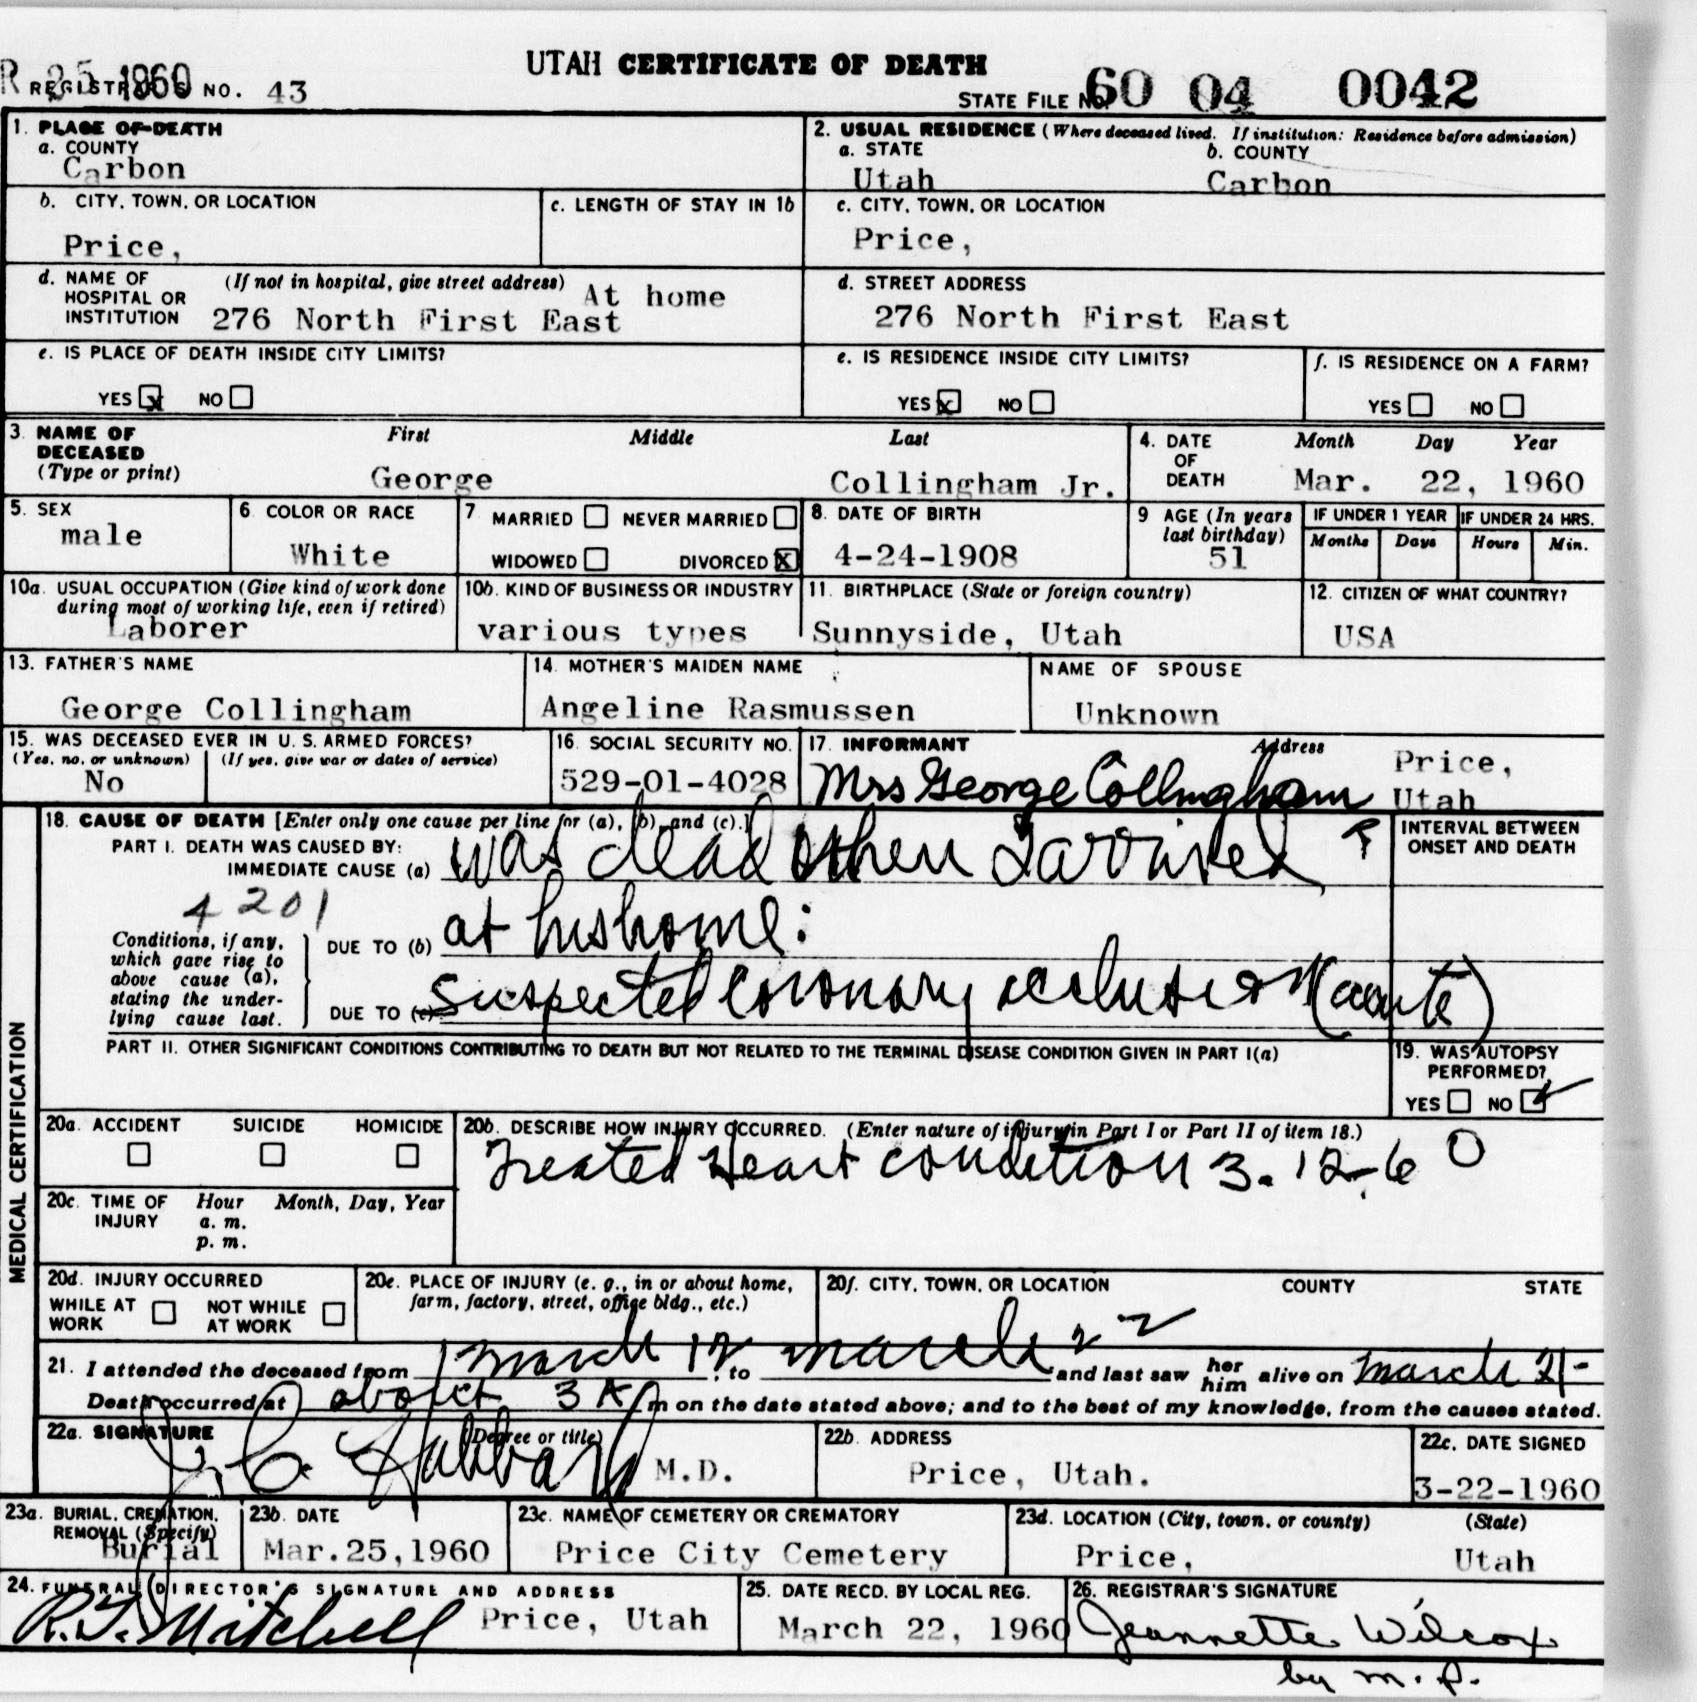 UTAH CERTIFICATE OF DEATH
R 25 1960
REGISTRAR'S NO. 43
STATE FILE NO. 60 04 0042
1. PLACE OF DEATH
a. COUNTY
Carbon
2. USUAL RESIDENCE (Where deceased lived. If institution: Residence before admission)
a. STATE b. COUNTY
Utah Carbon
b. CITY, TOWN, OR LOCATION
Price,
c. LENGTH OF STAY IN 1b
c. CITY, TOWN, OR LOCATION
Price,
d. NAME OF HOSPITAL OR INSTITUTION (If not in hospital, give street address) At home
276 North First East
d. STREET ADDRESS
276 North First East
e. IS PLACE OF DEATH INSIDE CITY LIMITS?
YES x NO
e. IS RESIDENCE INSIDE CITY LIMITS?
YES x NO
f. IS RESIDENCE ON A FARM?
YES NO
3. NAME OF DECEASED (Type or print)
First Middle Last
George Collingham Jr.
4. DATE OF DEATH
Month Day Year
Mar. 22, 1960
5. SEX
male
6. COLOR OR RACE
White
7 MARRIED NEVER MARRIED
WIDOWED DIVORCED X
8. DATE OF BIRTH
4-24-1908
9 AGE (In years last birthday)
51
IF UNDER 1 YEAR
Months Days
IF UNDER 24 HRS.
Hours Min.
10a. USUAL OCCUPATION (Give kind of work done
during most of working life, even if retired)
Laborer
10b. KIND OF BUSINESS OR INDUSTRY
various types
11. BIRTHPLACE (State or foreign country)
Sunnyside, Utah
12. CITIZEN OF WHAT COUNTRY?
USA
13. FATHER'S NAME
George Collingham
14. MOTHER'S MAIDEN NAME
Angeline Rasmussen
NAME OF SPOUSE
Unknown
15. WAS DECEASED EVER IN U. S. ARMED FORCES?
(Yes, no, or unknown) (If yes, give war or dates of service)
No
16. SOCIAL SECURITY NO.
529-01-4028
17. INFORMANT Address
Mrs George Collingham Price, Utah
MEDICAL CERTIFICATION
18. CAUSE OF DEATH [Enter only one cause per line for (a), (b), and (c).]
PART I. DEATH WAS CAUSED BY:
IMMEDIATE CAUSE (a) was dead when I arrived
INTERVAL BETWEEN
ONSET AND DEATH
4201
Conditions, if any, which gave rise to above cause (a), stating the underlying cause last.
DUE TO (b) at his home:
DUE TO (c) suspected coronary occlusion (acute)
PART II. OTHER SIGNIFICANT CONDITIONS CONTRIBUTING TO DEATH BUT NOT RELATED TO THE TERMINAL DISEASE CONDITION GIVEN IN PART I(a)
19. WAS AUTOPSY PERFORMED?
YES NO ✓
20a. ACCIDENT SUICIDE HOMICIDE
20b. DESCRIBE HOW INJURY OCCURRED. (Enter nature of injury in Part I or Part II of item 18.)
Treated Heart condition 3-12-60
20c. TIME OF INJURY Hour Month, Day, Year
a. m.
p. m.
20d. INJURY OCCURRED
WHILE AT WORK NOT WHILE AT WORK
20e. PLACE OF INJURY (e. g., in or about home,
farm, factory, street, office bldg., etc.)
20f. CITY, TOWN, OR LOCATION COUNTY STATE
21. I attended the deceased from March 12, to March 22 and last saw her him alive on March 21-
Death occurred at about 3 A m on the date stated above; and to the best of my knowledge, from the causes stated.
22a. SIGNATURE (Degree or title)
J. C. Hubbard M.D.
22b. ADDRESS
Price, Utah.
22c. DATE SIGNED
3-22-1960
23a. BURIAL, CREMATION, REMOVAL (Specify)
Burial
23b. DATE
Mar.25,1960
23c. NAME OF CEMETERY OR CREMATORY
Price City Cemetery
23d. LOCATION (City, town, or county) (State)
Price, Utah
24. FUNERAL DIRECTOR'S SIGNATURE AND ADDRESS
R.J. Mitchell Price, Utah
25. DATE RECD. BY LOCAL REG.
March 22, 1960
26. REGISTRAR'S SIGNATURE
Jeannette Wilcox
by m. p.